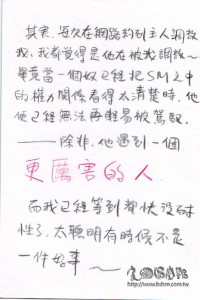 其實，每次在網路釣到主人調教
我，我都覺得是他在被我調教～
畢竟當一個奴已經把SM之中
的權力關係看得太清楚時，他
便已經無法再輕易被駕馭
——除非，他遇到一個
更厲害的人.
而我已經等到都快沒耐
性了，太聰明有時候不是
一件好事～
http://www.bdsm.com.tw